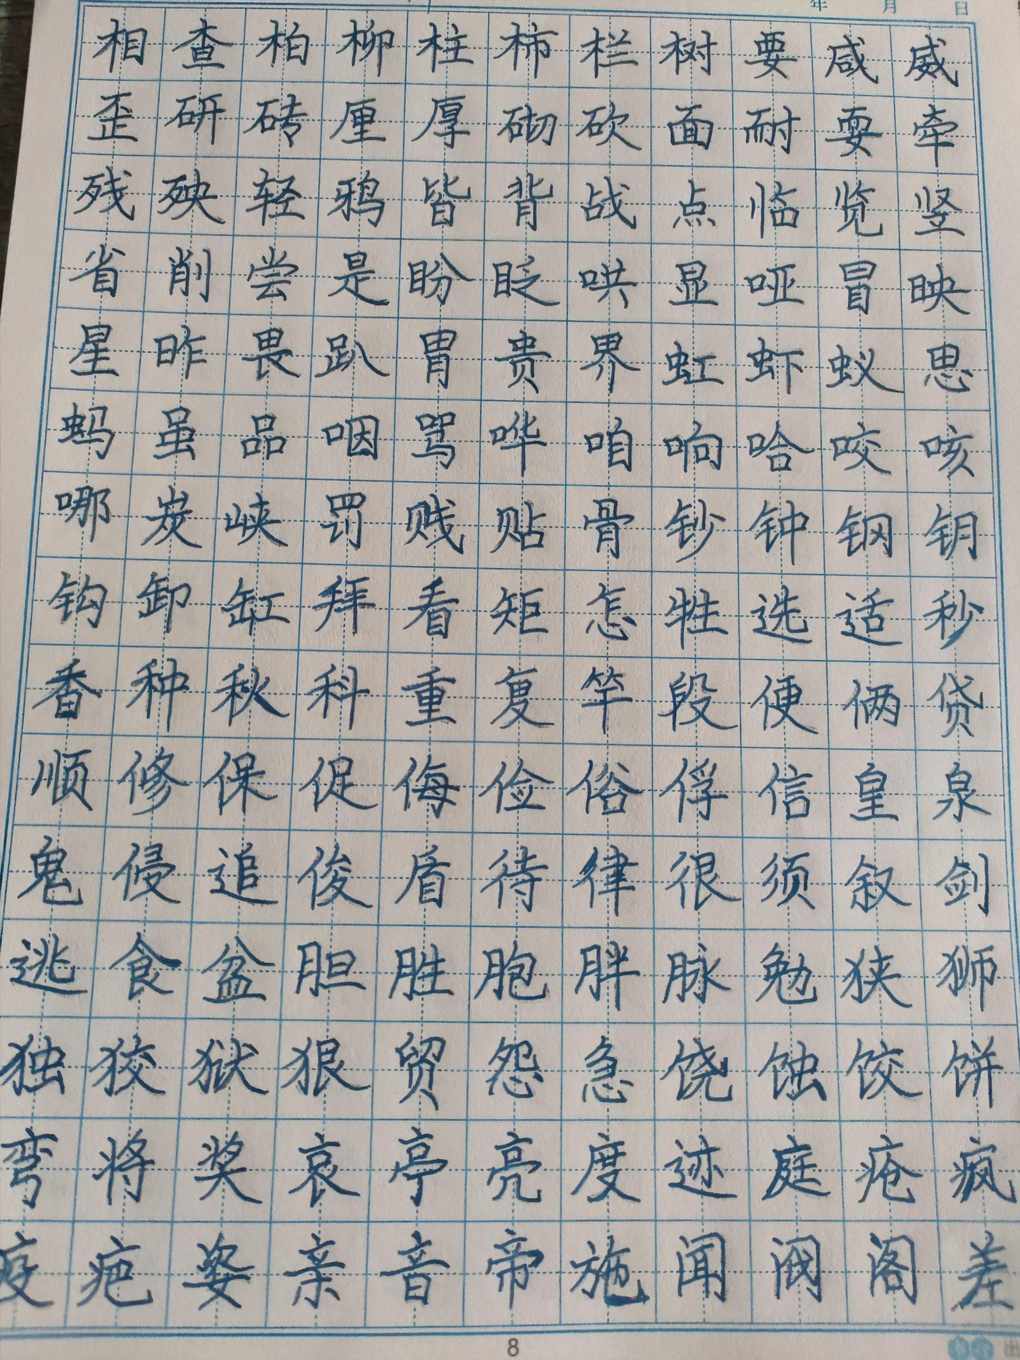 年 月 日
相查柏柳柱柿栏树要咸威
歪研砖厘厚砌砍面耐耍牵
残殃轻鸦皆背战点临览竖
省削尝是盼眨哄显哑冒映
星昨畏趴胃贵界虹虾蚁思
蚂虽品咽骂哗咱响哈咬咳
哪炭峡罚贱贴骨钞钟钢钥
钩卸缸拜看矩怎牲选适秒
香种秋科重复竿段便俩贷
顺修保促侮俭俗俘信皇泉
鬼侵追俊盾待律很须叙剑
逃食盆胆胜胞胖脉勉狭狮
独狡狱狠贸怨急饶蚀饺饼
弯将奖哀亭亮度迹庭疮疯
疫疤姿亲音帝施闻阀阁差
8